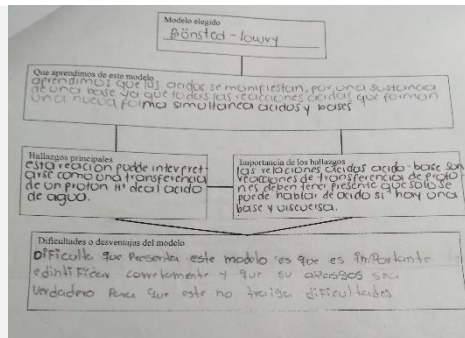 Modelo elegido
Brönsted-lowry
Que aprendimos de este modelo
aprendimos que los acidos se manifiestan, por una sustancia
de una base ya que todas las reacciones acidas que forman
una nueva forma simultanea acidos y bases
Hallazgos principales
esta reacion podde interpret-
arse como una transferencia
de un proton H+ de al acido
de agua.
Importancia de los hallazgos
las relaciones acidas acido-base son
reacciones de transferencia de proto-
nes deben tener presente que solo se
puede hablar de acido si hay una
base y viceversa.
Dificultades o desventajas del modelo
Dificulta que presenta este modelo es que es importante
edintificar corretamente y que su sea
verdadero para que este no traiga dificultades